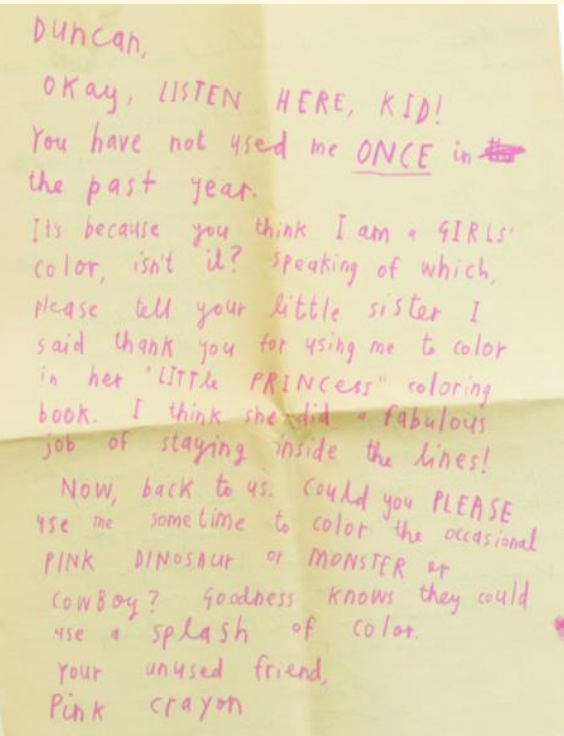 Duncan,
Okay, LISTEN HERE, KID!
You have not used me ONCE in
the past year.
Its because you think I am a GIRLS'
color, isn't it? Speaking of which,
please tell your little sister I
said thank you for using me to color
in her "LITTLe PRINCess" coloring
book. I think she did a fabulous
job of staying inside the lines!
Now, back to us. Could you PLEASE
use me sometime to color the occasional
PINK DINOSAUr or MONSTER or
COWBoy? Goodness knows they could
use a splash of color.
Your unused friend,
Pink crayon